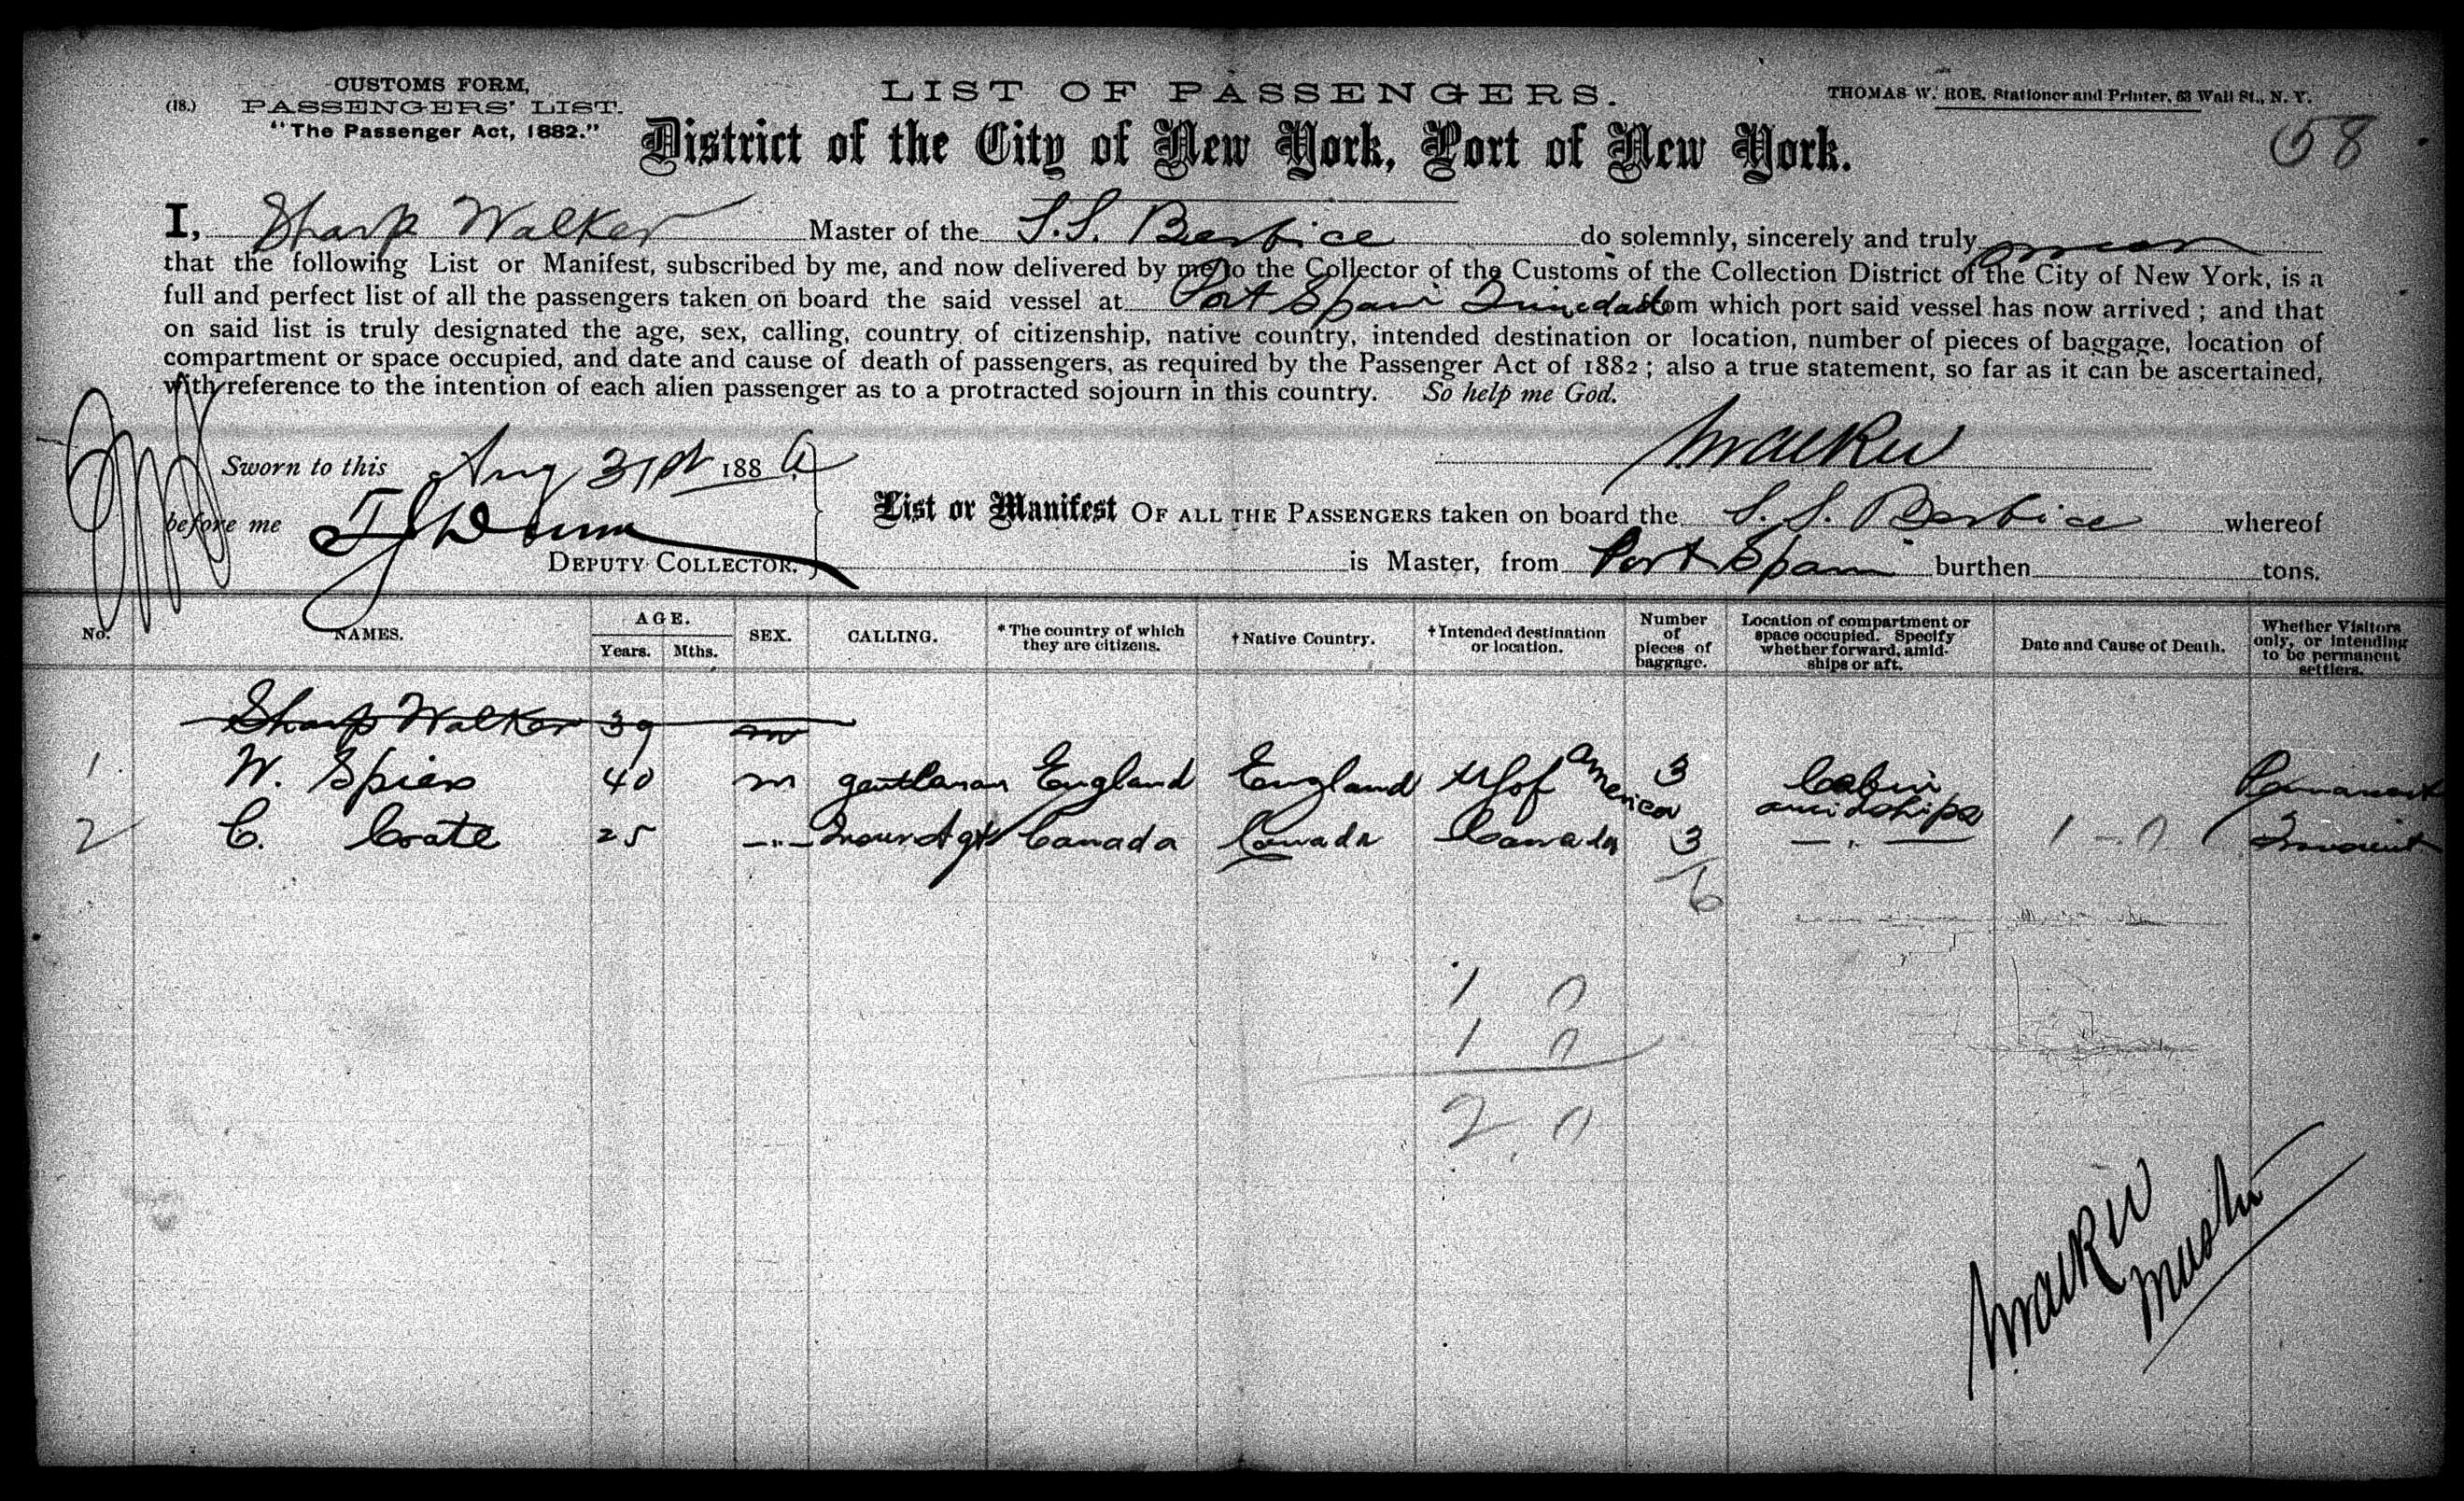 (18.) CUSTOMS FORM,
PASSENGERS' LIST.
"The Passenger Act, 1882."
LIST OF PASSENGERS.
THOMAS W. ROE, Stationer and Printer, 63 Wall St., N. Y.
58
District of the City of New York, Port of New York.
I, Sharp Walker Master of the S.S. Berbice do solemnly, sincerely and truly swear
that the following List or Manifest, subscribed by me, and now delivered by me to the Collector of the Customs of the Collection District of the City of New York, is a
full and perfect list of all the passengers taken on board the said vessel at Port Spain Trinedad from which port said vessel has now arrived; and that
on said list is truly designated the age, sex, calling, country of citizenship, native country, intended destination or location, number of pieces of baggage, location of
compartment or space occupied, and date and cause of death of passengers, as required by the Passenger Act of 1882; also a true statement, so far as it can be ascertained,
with reference to the intention of each alien passenger as to a protracted sojourn in this country. So help me God.
Sworn to this Aug 31st 1886
SWalker
before me
DEPUTY COLLECTOR.
List or Manifest OF ALL THE PASSENGERS taken on board the S.S. Berbice whereof
is Master, from Port Spain burthen tons.
No. NAMES. AGE. Years. Mths. SEX. CALLING. *The country of which they are citizens. †Native Country. †Intended destination or location. Number of pieces of baggage. Location of compartment or space occupied. Specify whether forward, amidships or aft. Date and Cause of Death. Whether Visitors only, or intending to be permanent settlers.
Sharp Walker 39 m
1 W. Spiers 40 m gentleman England England US of America 3 Cabin amidships Permanent
2 C. Coate 25 -"- Insur Agt Canada Canada Canada 3 -"- 1 - 0 Transient
6
1 0
1 0
2 0
SWalker
Master